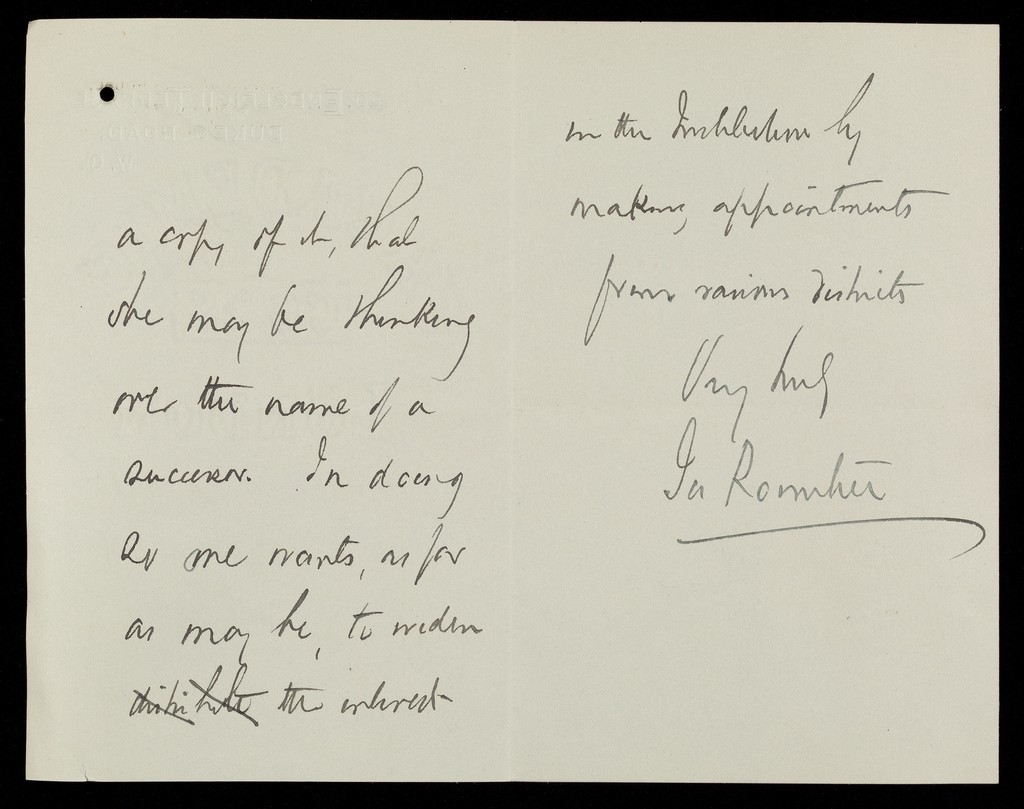 a copy of it, that
she may be thinking
over the name of a
successor. In doing
so one wants, as far
as may be, to widen
distribute the interest
in the Institution by
making appointments
from various districts
Very truly
Jos Rowntree